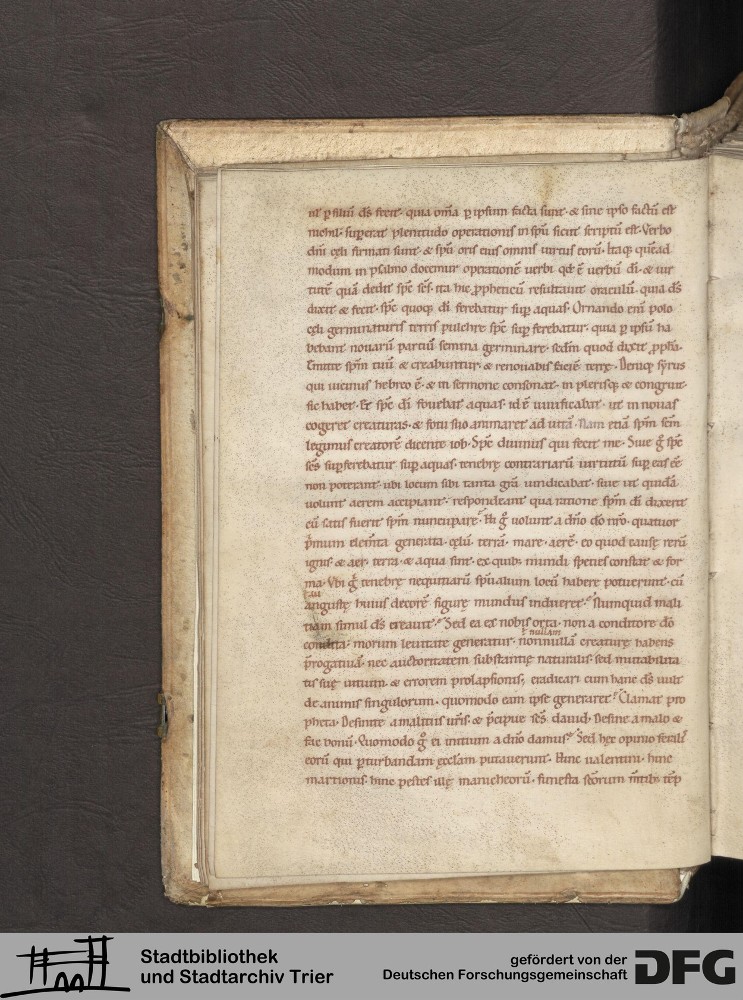 ut p filiū ds̄ fecit. quia om̄a p ipsum facta sunt. & sine ipso factū est
nichil. supperat plenitudo operationis in spū sicut scriptū est. Verbo
dn̄i cęli firmati sunt. & spū oris eius omnis uirtus eorū. Itaq; quēad
modum in psalmo docemur operationē uerbi qđ ē uerbū di. & uir
tutē quā dedit spc̄ sc̄s. ita hic ppheticū resultauit oraculū. quia ds̄
dixit & fecit. spc̄ quoq; di ferebatur sup aquas. Ornando eni polo
cęli germinaturis terris pulchre spc̄ sup ferebatur. quia p ipsū ha
bebant nouarū partuū semina germinare. sedm quod dixit ppha.
Emitte spm tuū & creabuntur. & renouabis faciē terrę. Deniq; syrus
qui uicinus hebreo ē. & in sermone consonat. in plerisq; & congruit.
sic habet. Et spc̄ di fouebat aquas. id ē uiuificabat. ut in nouas
cogeret creaturas. & fotu suo animaret ad uitā. Nam etiā spm scm̄
legimus creatorē dicente iob. Spc̄ diuinus qui fecit me. Siue g̊ spc̄
sc̄s supferebatur sup aquas. tenebrę contrariarū uirtutū sup eas eē
non poterant. ubi locum sibi tanta grā uindicabat. siue ut quidā
uolunt aerem accipiant. respondeant qua ratione spm di dixerit
cū satis fuerit spm nuncupare. Hi g̊ uolunt a dn̄o dō nro. quatuor
pmum elem̄ta generata. cęlū. terrā. mare. aerē. eo quod causę rerū
ignis & aer. terra & aqua sint. ex quib; mundi species constat & for
ma. Vbi g̊ tenebrę nequitiarū spū̄alium locū habere potuerunt. cū
au
angustę huius decorē figurę mundus indueret. Numquid mali
tiam simul ds̄ creauit. Sed ea ex nobis orta. non a conditore dō
condita. morum leuitate generatur. nonnullā creaturę habens
nullam
progatiuā. nec auctoritatem substantię naturalis. sed mutabilita
tis suę uitium & errorem prolapsionis; eradicari cum hanc ds̄ uult
de animis singulorum. quomodo eam ipse generaret. Clamat pro
pheta. Desinite a malitiis uris. & pcipue sc̄s dauid. Desine a malo &
fac bonū. Quomodo g̊ ei initium a dn̄o damus. Sed hęc opinio feralis
eorū qui pturbandam ęcclam putauerunt. Hinc ualentini. hinc
martionis. hinc pestes illę manicheorū. funesta scōrum m̄tib; tēp
Stadtbibliothek
und Stadtarchiv Trier
gefördert von der
Deutschen Forschungsgemeinschaft
DFG